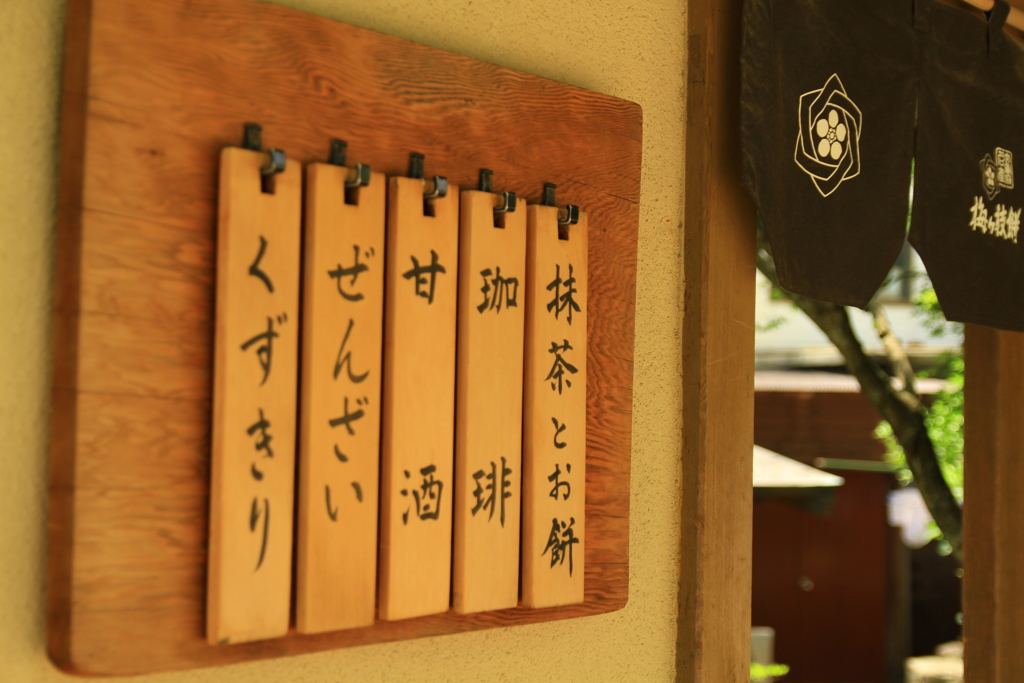 抹茶とお餅
珈琲
甘酒
ぜんざい
くずきり
梅ヶ枝餅